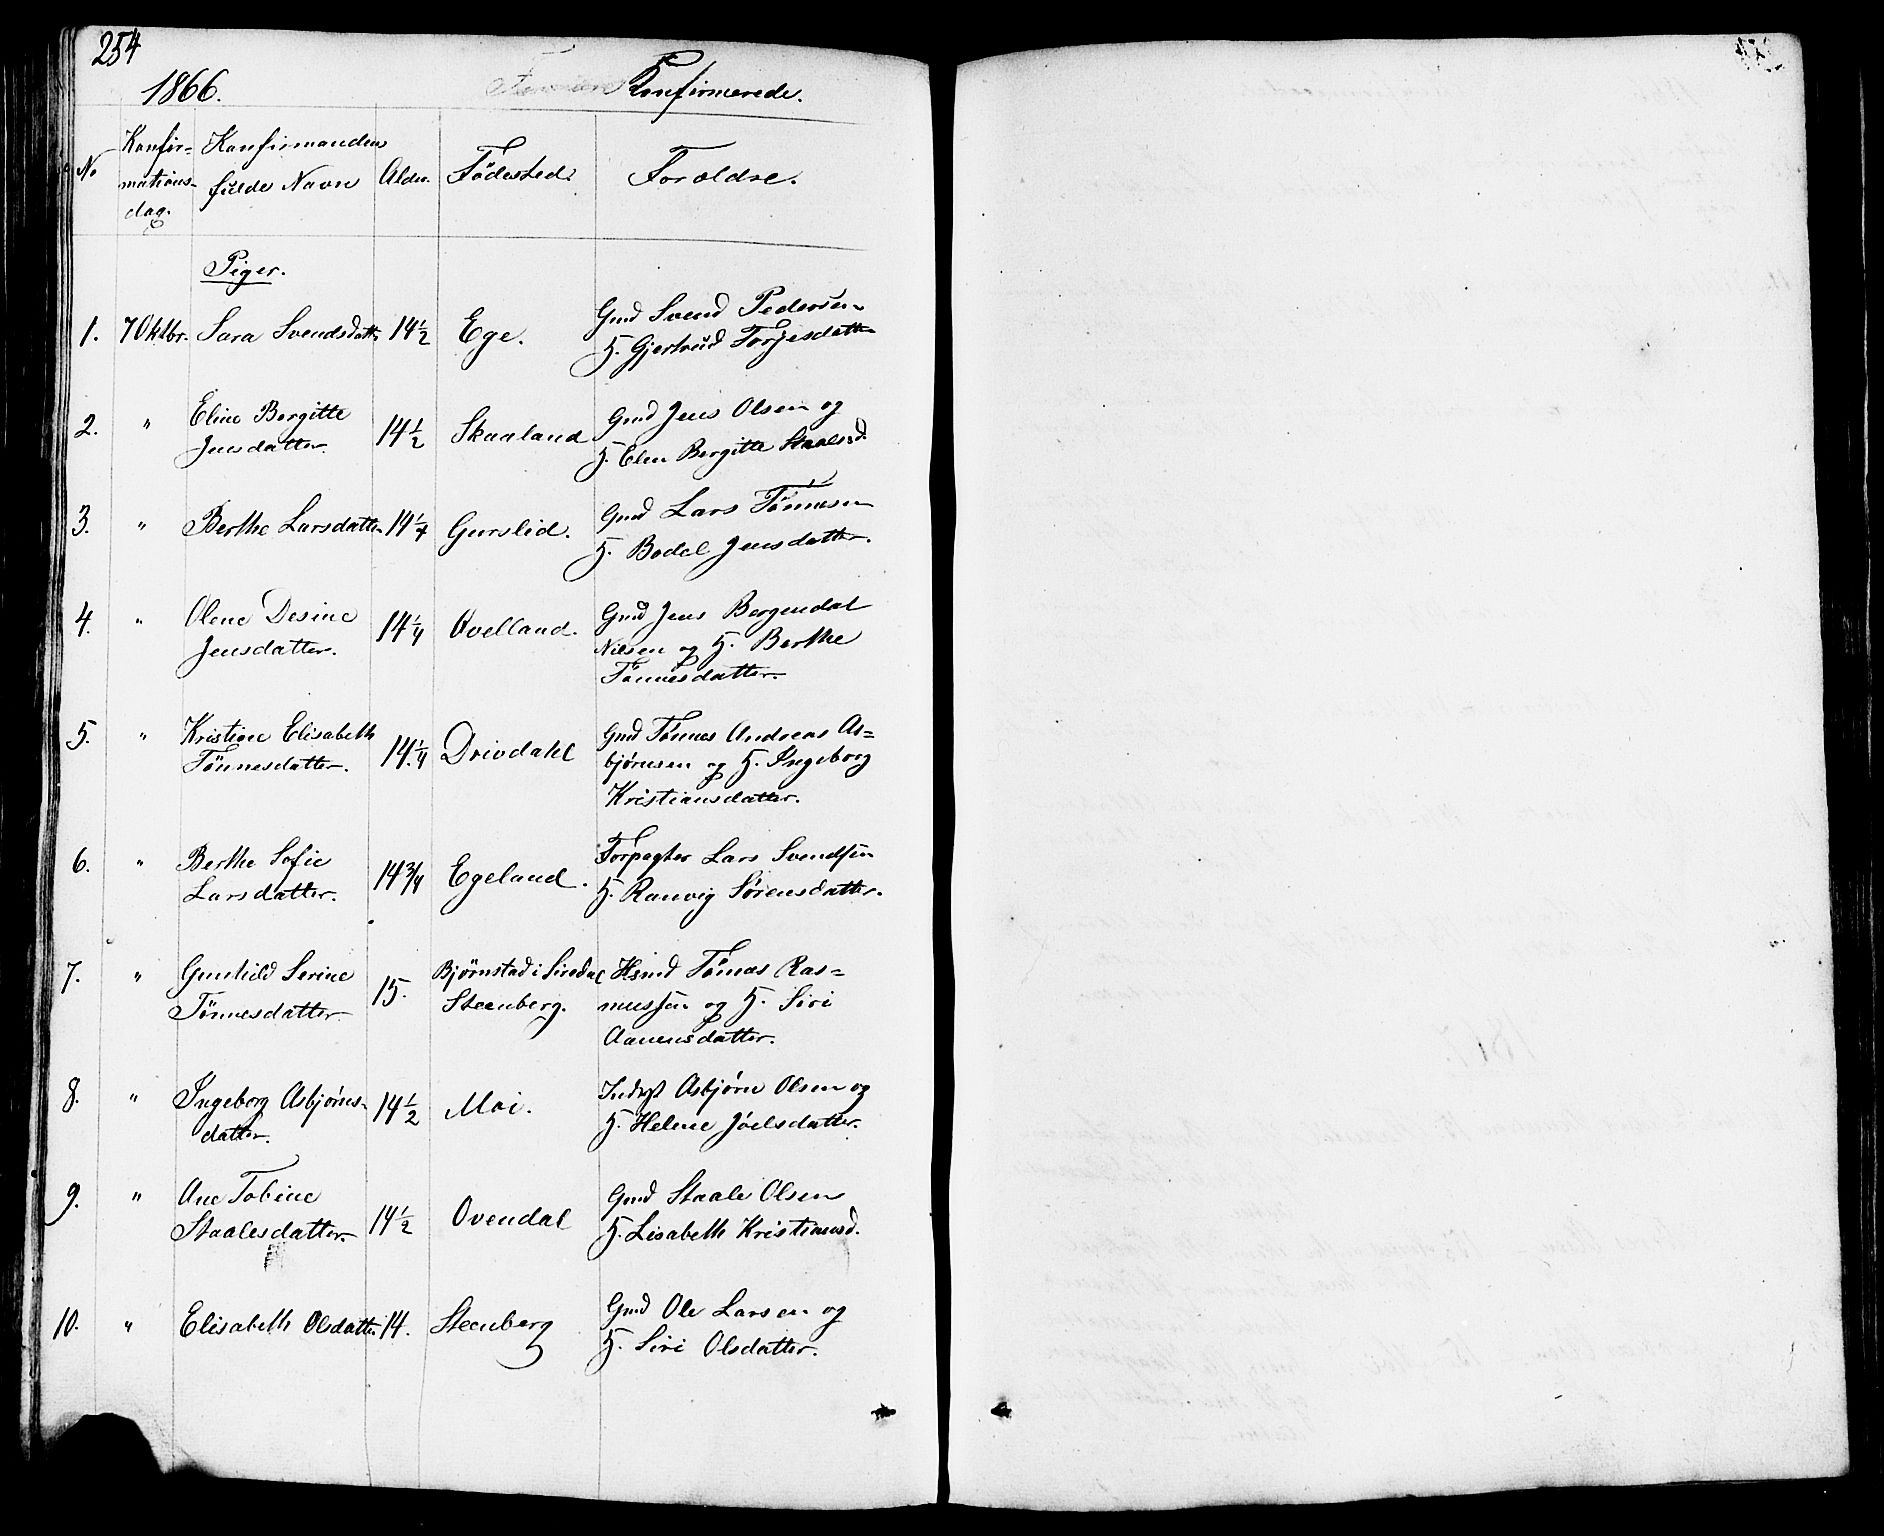 254
1866. Konfirmerede.
No Konfir= mations- dag. Konfirmandens fulde Navn Alder. Fødested. Forældre.
Piger.
1. 7 Oktbr. Sara Svendsdatt. 14 1/2 Ege. Gmd Svend Pedersen
H. Gjertrud Torjesdatter
2. " Eline Bergitte 14 1/2 Skaaland Gmd Jens Olsen og
Jensdatter. H. Elen Bergitte Staalesd.
3. " Berthe Larsdatter 14 1/4 Gurslid. Gmd Lars Tönnesen
H. Bodel Jensdatter.
4. " Olene Desine 14 1/4 Qvelland. Gmd Jens Bergendal
Jensdatter. Nilsen og H. Berthe
Tönnesdatter.
5. " Kristine Elisabeth 14 1/4 Drivdahl Gmd Tønnes Andreas As=
Tönnesdatter. bjørnsen og H. Ingeborg
Kristiansdatter.
6. " Berthe Sofie 14 3/4 Egeland. Forpagter Lars Svendsen
Larsdatter. H. Ranvig Sørensdatter.
7. " Gunhild Serine 15. Bjørnstad i Siredal Hsmd Tønnes Ras=
Tønnesdatter Steenberg. mussen og H. Siri
Aanensdatter.
8. " Ingeborg Asbjørns- 14 1/2 Moi. Asbjørn Olsen og
datter. H. Helene Joelsdatter.
9. " Ane Tobine 14 1/2 Ovendal Gmd Staale Olsen
Staalesdatter. H. Lisabeth Kristiansd.
10. " Elisabeth Olsdatter 14. Steenberg Gmd Ole Larsen og
H. Siri Olsdatter.